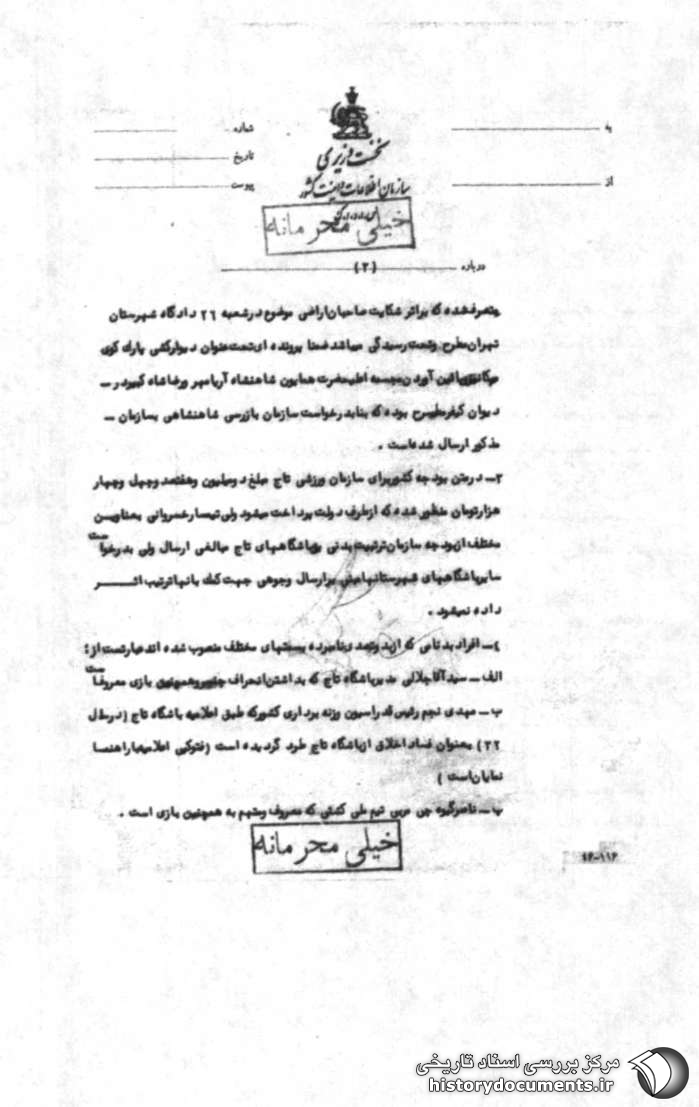 به
شماره
نخست وزیری
تاریخ
از
سازمان اطلاعات و امنیت کشور
پیوست
خیلی محرمانه
درباره (۲)
شده که براثر شکایت صاحبان اراضی موضوع در شعبه ۲۶ دادگاه شهرستان
تهران مطرح وتحت رسیدگی میباشد ضمنا پرونده ای تحت عنوان دیوارکشی پارک کوی
پائین آوردن مجسمه اعلیحضرت همایون شاهنشاه آریامهر ورضا شاه کبیر در —
دیوان کیفر مطرح بوده که بنا بدرخواست سازمان بازرسی شاهنشاهی بسازمان —
مذکور ارسال شده است .
۳— در متن بودجه کشور برای سازمان ورزشی تاج مبلغ دومیلیون وهفتصد وچهل وچهار
هزارتومان منظور شده که ازطرف دولت پرداخت میشود ولی تیمسار خسروانی بعناوین
مختلف ازبودجه سازمان تربیت بدنی بباشگاههای تاج مبالغی ارسال ولی بدرخواست
سایرباشگاههای شهرستانها مبنی برارسال وجوهی جهت کمک بآنها ترتیب اثر
داده نمیشود .
٤— افراد بدنامی که نامبرده بسمتهای مختلف منصوب شده اند عبارتست از :
الف — سید آقا جلالی مدیر باشگاه تاج که بداشتن انحراف وهمچنین بازی معروفست
پ — مهدی نجم رئیس فدراسیون وزنه برداری کشورکه طبق اعلامیه باشگاه تاج (درسال
۳۲) بعنوان فساد اخلاق ازباشگاه تاج طرد گردیده است (فتوکپی اعلامیه
است )
پ — ناصر گیوه چی مربی تیم ملی کشتی که معروف ومتهم به همچنین بازی است .
خیلی محرمانه
۱۶-۱۱۶
مرکز بررسی اسناد تاریخی
historydocuments.ir